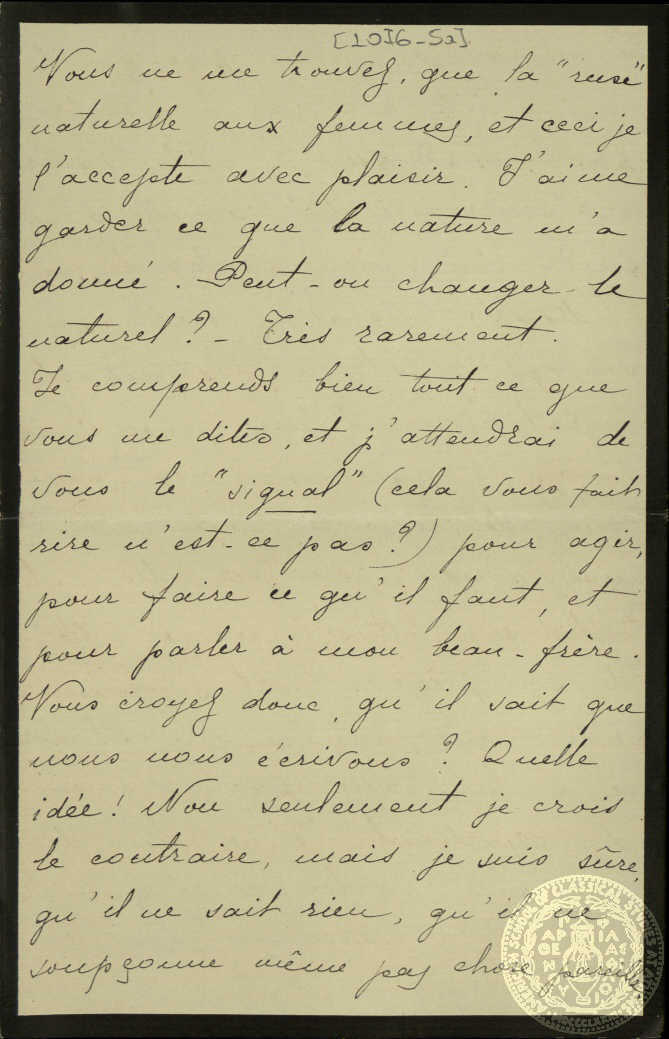 [1016-5a]
Vous ne me trouvez, que la "ruse"
naturelle aux femmes, et ceci je
l'accepte avec plaisir. J'aime
garder ce que la nature m'a
donné. Peut-on changer le
naturel? - Très rarement.
Je comprends bien tout ce que
vous me dites, et j'attendrai de
vous le "signal" (cela vous fait
rire n'est-ce pas?) pour agir,
pour faire ce qu'il faut, et
pour parler à mon beau-frère.
Vous croyez donc, qu'il sait que
nous nous écrivons? Quelle
idée! Non seulement je crois
le contraire, mais je suis sûre,
qu'il ne sait rien, qu'il ne
soupçonne même pas chose pareille.